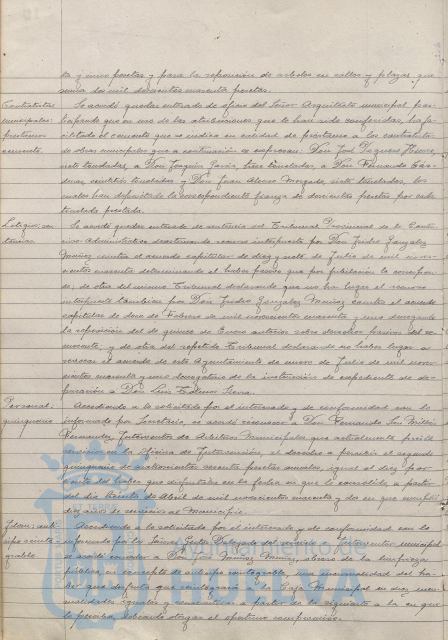 ta y cinco pesetas y para la reposición de arboles en calles y plazas que
suma dos mil doscientas cuarenta pesetas.
Contratistas municipales: préstamos cemento.
Se acordó quedar enterado de oficio del Señor Arquitecto municipal par-
ticipando que en uso de las atribuciones que le han sido conferidas, ha fa-
cilitado el cemento que se indica en calidad de préstamo a los contratistas
de obras municipales que a continuación se expresan: Don José
toneladas, a Don Joaquín García, tres toneladas, a Don Fernando Cár-
denas veintitrés toneladas y Don Juan Alonso Morgado, siete toneladas, los
cuales han depositado la correspondiente fianza de doscientas pesetas por cada
tonelada prestada.
Litigios: sen-
tencias.
Se acordó quedar enterado de sentencia del Tribunal Provincial de lo Conten-
cioso Administrativo desestimando recurso interpuesto por Don Isidro González
Muñoz contra el acuerdo capitular de diez y nueve de Julio de mil nove-
cientos cuarenta determinando el haber pasivo que por jubilación le correspon-
de; de otra del mismo Tribunal declarando que no ha lugar el recurso
interpuesto tambien por Don Isidro González Muñoz contra el acuerdo
capitular de doce de Febrero de mil novecientos cuarenta y uno denegando
la reposición del de quince de Enero anterior sobre derechos pasivos del re-
currente, y de otra del repetido Tribunal declarando no haber lugar a
revocar el acuerdo de este Ayuntamiento de nueve de Julio de mil nove-
cientos cuarenta y uno denegatorio de la instrucción de expediente de de-
puración a Don Luis Serra.
Personal:
quinquenio
Accediendo a lo solicitado por el interesado y de conformidad con lo
informado por Secretaría, se acordó reconocer a Don Fernando
Fernández, Interventor de Arbitrios Municipales que actualmente presta
servicio en la Oficina de Intervención, el derecho a percibir el segundo
quinquenio de cuatrocientas cincuenta pesetas anuales, igual al diez por
ciento del haber que disfrutaba en la fecha en que lo consolida, a partir
del dia treinta de Abril de mil novecientos cuarenta y dos en que cumplió
diez años de servicios al Municipio.
Idem: anti-
cipo reinte-
grable
Accediendo a lo solicitado por el interesado y de conformidad con lo
informado por los Señores Jefe Delegado del servicio e Interventor municipal
se acordó conceder a Muñoz Muñoz, obrero de la limpieza
pública, en concepto de anticipo reintegrable, una mensualidad del ha-
ber que disfruta que reintegrará a la Caja Municipal en diez men-
sualidades iguales y consecutivas a partir de la siguiente a la en que
lo perciba, debiendo otorgar el oportuno compromiso.
Ayuntamiento de